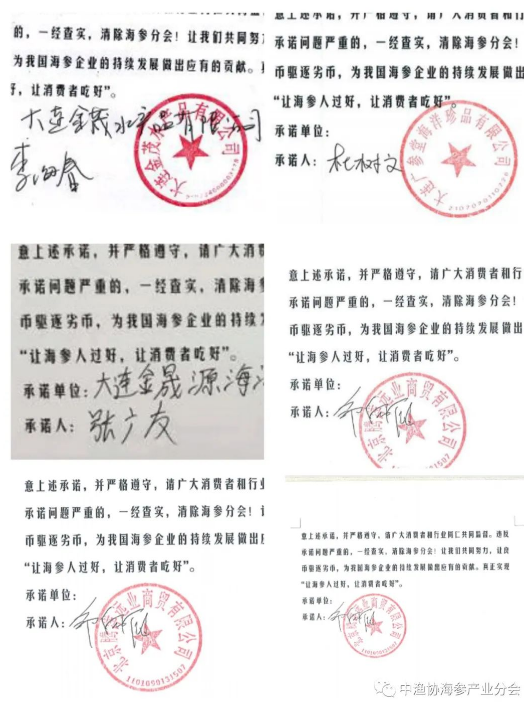 的，一经查实，清除海参分会！让我们共同努力
为我国海参企业的持续发展做出应有的贡献。真
好，让消费者吃好”。
大连金茂水产品有限公司
李海春
意上述承诺，并严格遵守，请广大消费者
承诺问题严重的，一经查实，清除海参分
币驱逐劣币，为我国海参企业的持续发展
“让海参人过好，让消费者吃好”。
承诺单位：
承诺人：杜树文
意上述承诺，并严格遵守，请广大消费者
承诺问题严重的，一经查实，清除海参分会
币驱逐劣币，为我国海参企业的持续发
“让海参人过好，让消费者吃好”。
承诺单位：大连金晟源海
承诺人：张广友
意上述承诺，并严格遵守，请广大消费者和行
承诺问题严重的，一经查实，清除海参分会！
币驱逐劣币，为我国海参企业的持续发展做出
“让海参人过好，让消费者吃好”。
承诺单位：
承诺人：
意上述承诺，并严格遵守，请广大消费者和行业
承诺问题严重的，一经查实，清除海参分会！让
币驱逐劣币，为我国海参企业的持续发展做出应
“让海参人过好，让消费者吃好”。
承诺单位：
承诺人：
意上述承诺，并严格遵守，请广大消费者和行业同仁共同监督。违反
承诺问题严重的，一经查实，清除海参分会！让我们共同努力，让良
币驱逐劣币，为我国海参企业的持续发展做出应有的贡献。真正实现
“让海参人过好，让消费者吃好”。
承诺单位：
承诺人：
中渔协海参产业分会